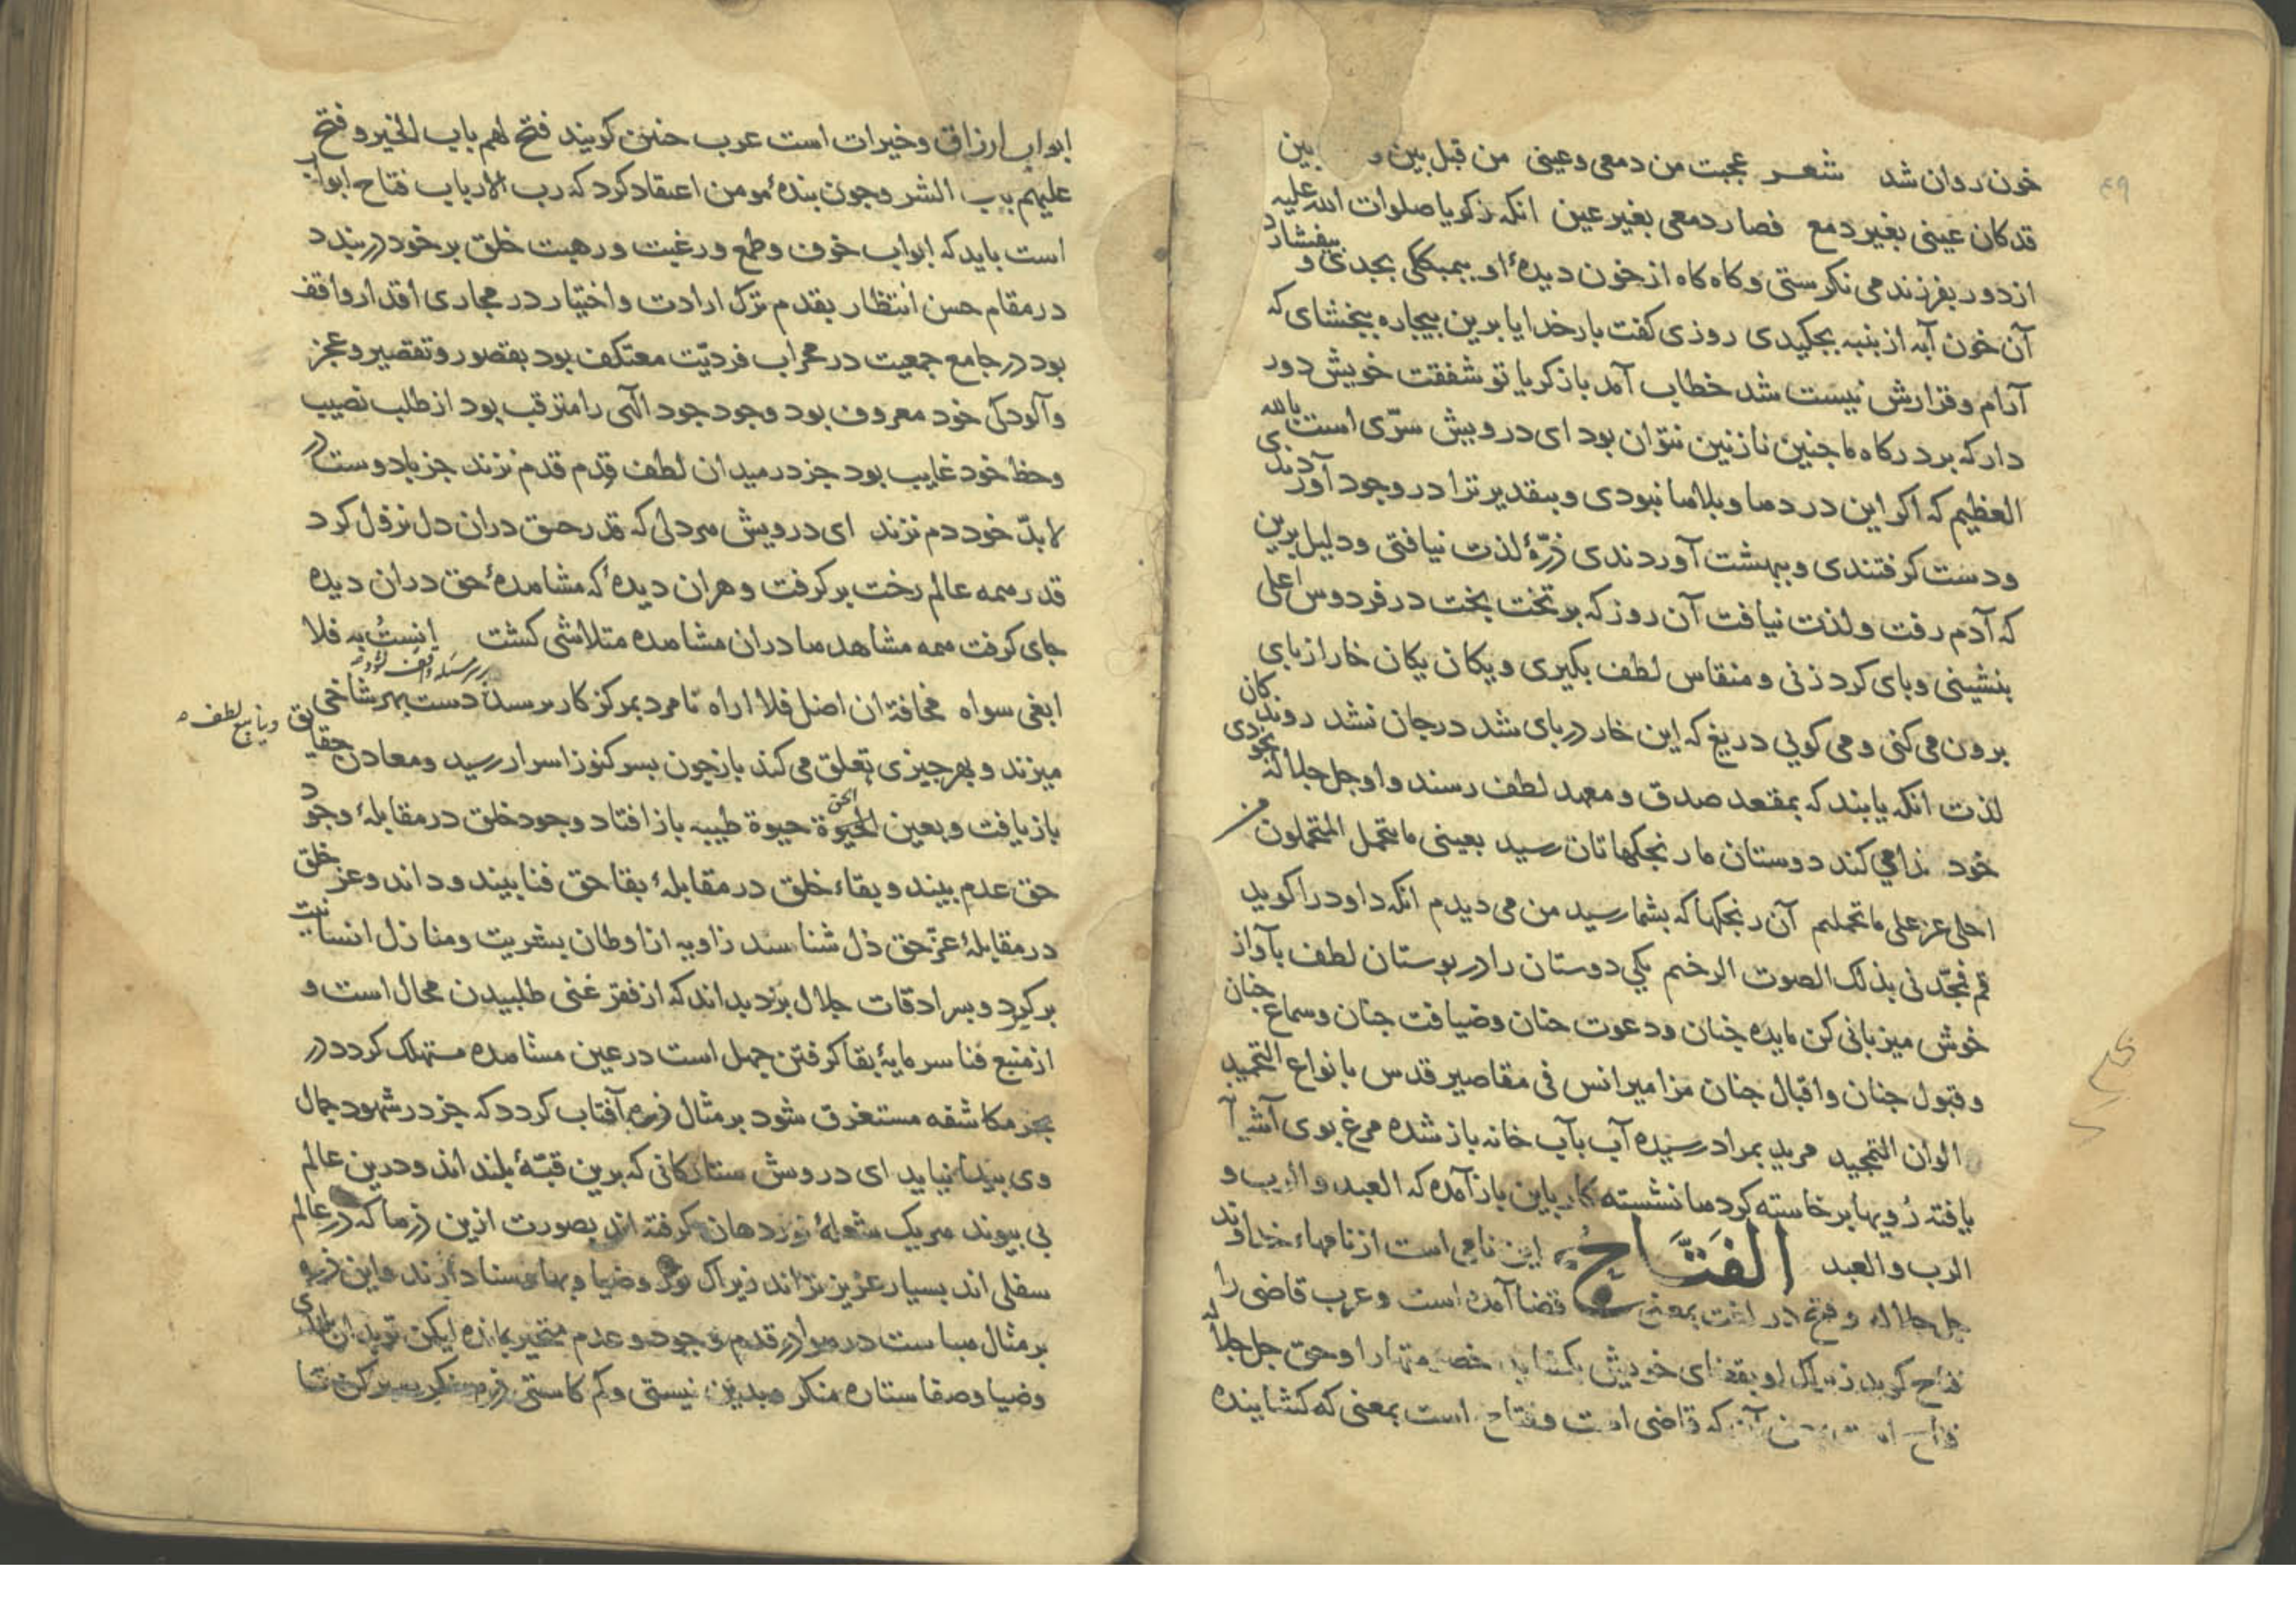 ٤٩
خون روان شد شعر عجبت من دمعی وعینی من قبل بین و بین
قد کان عینی بغیر دمع فصار دمعی بغیر عین انکه زکریا صلوات الله علیه
از دور بفرزند می نکرستی و کاه کاه از خون دیدهٔ او بچکیدی و بیفشارد
آن خون آبه از پنبه بچکیدی روزی کفت بار خدایا برین بیچاره ببخشای که
آرام و قرارش نیست شد خطاب آمد یا زکریا تو شفقت خویش دور
دار که بر درکاه ما چنین نازنین نتوان بود ای درویش سرّی است بالله
العظیم که اکر این دردها وبلاها نبودی وبتقدیر ترا در وجود آوردندی
ودست کرفتندی وببهشت آوردندی ذرّهٔ لذت نیافتی ودلیل برین
که آدم رفت ولذت نیافت آن روز که بر تخت بخت در فردوس اعلی
بنشینی وپای کرد زنی ومنقاش لطف بکیری ویکان یکان خار از پای
برون می کنی ومی کویی دریغ که این خار در پای شد در جان نشد روندکان
لذت انکه یابند که بمقعد صدق ومعهد لطف رسند واو جل جلاله بخودی
خود ندا می کند دوستان ما رنجکهاتان رسید بعینی ما یتحمل المتحملون من
اجلی عز علی ما تحملتم آن رنجکها که بشما رسید من می دیدم انکه داود را کوید
قم فمجّدنی بذلک الصوت الرخیم یکی دوستان را در بوستان لطف بآواز
خوش میزبانی کن مایده جنان ودعوت حنان وضیافت جنان وسماع جنان
وقبول جنان واقبال جنان مزامیر انس فی مقاصیر قدس بانواع التحمید
الوان التمجید مرید بمراد رسیده آب بآب خانه باز شده مرغ بوی آشیا
یافته رویها برخاسته کردها نشسته کار باین باز آمده که العبد والرب و
الرب والعبد الفَتَّاحُ این نامی است از نامهاء خداوند
جل جلاله وفتح در لغت بمعنی قضا آمده است وعرب قاضی را
فتاح کوید زیراک او بقضای خویش بکشاید خصومتها را وحق جل جلاله
فتاح است که قاضی است وفتاح است بمعنی که کشاینده
ابواب ارزاق وخیرات است عرب چنین کویند فتح لهم باب الخیر وفتح
علیهم باب الشر وچون بندهٔ مومن اعتقاد کرد که رب الارباب فتاح ابواب
است باید که ابواب خوف وطمع ورغبت ورهبت خلق بر خود دربندد
در مقام حسن انتظار بقدم ترک ارادت واختیار در مجاری اقدار واقف
بود در جامع جمعیت در محراب فردیّت معتکف بود بقصور وتقصیر وعجز
وآلودکی خود معروف بود وجود جود الهی را مترقب بود از طلب نصیب
وحظ خود غایب بود جز در میدان لطف قدم قدم نزند جز با دوست در
لابدّ خود دم نزند ای درویش هر دلی که قدر حق دران دل نزول کرد
قدر همه عالم رخت بر کرفت وهران دیده که مشاهدهٔ حق دران دیده
جای کرفت همه مشاهدها دران مشاهده متلاشی کشت انِستُ به فلا
ابغی سواه مخافة ان اضل فلا اراه تا مرد بمرکز کار نرسد دست بهر شاخی
میزند وبهر چیزی تعلق می کند باز چون بسر کنوز اسرار رسید ومعادن حقایق
وینابیع لطف
باز یافت وبعین الحیوة حیوة طیبه باز افتاد وجود خلق در مقابلهٔ وجود
حق عدم بیند وبقاء خلق در مقابلهٔ بقا حق فنا بیند وداند وعز خلق
در مقابلهٔ عزّ حق ذل شناسد زاویه از اوطان بشریت ومنازل انسانیت
برکیرد وبسرادقات جلال برزد بداند که از فقر غنی طلبیدن محال است و
از منبع فنا سرمایهٔ بقا کرفتن جهل است در عین مشاهده مستهلک کردد در
بحر مکاشفه مستغرق شود بر مثال ذرهٔ آفتاب کردد که جز در شهود جمال
وی پیدا نیاید ای درویش ستارکانی که برین قبّهٔ بلند اند ودرین عالم
بی پیوند هر یک شعلهٔ نور در دهان کرفته اند بصورت ازین ذرها که در عالم
سفلی اند بسیار عزیزتر اند زیراک نور وضیا وبها وسنا دارند واین ذره
بر مثال هباست در هوا در قدم وجود وعدم متحیر بمانده لیکن تو بدان بلندی
وضیا وصفا ستاره منکر وبدین نیستی وکم کاستی ذره منکر